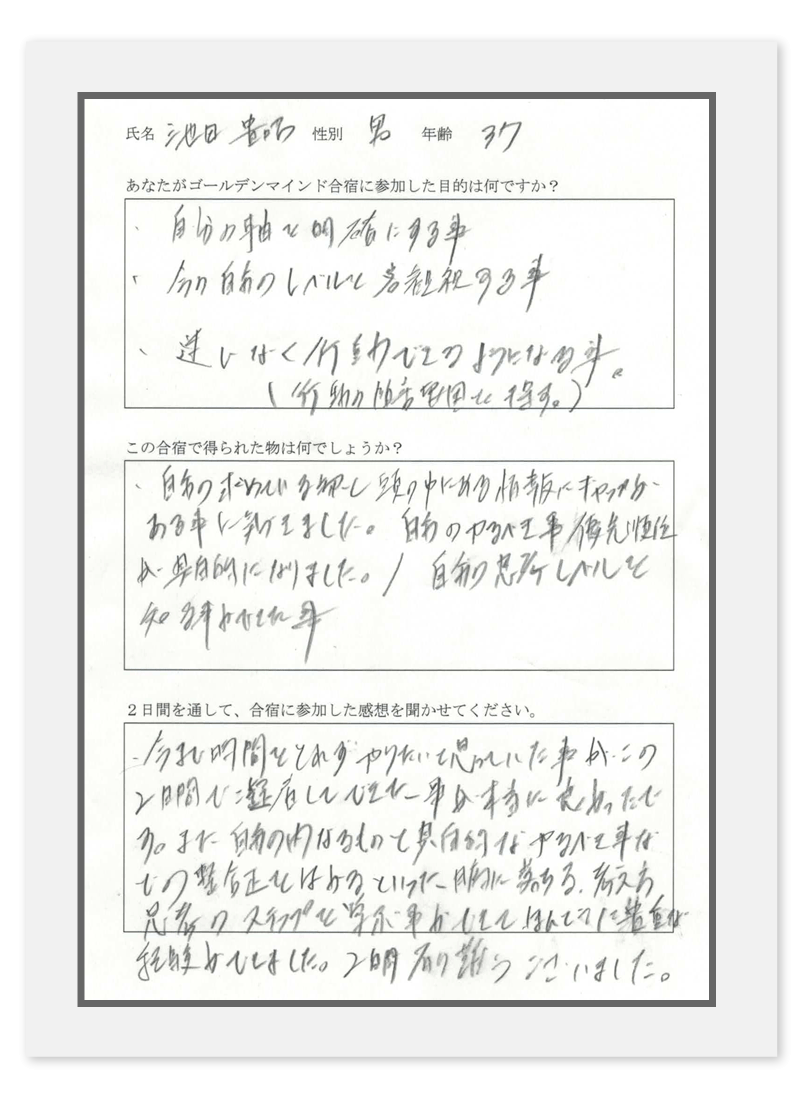 氏名 池田 貴昭 性別 男 年齢 37
あなたがゴールデンマインド合宿に参加した目的は何ですか？
・自分の軸を明確にする事
・今の自分のレベルを客観視する事
・迷いなく行動できるようになる事。
（行動の 範囲を 増す。）
この合宿で得られた物は何でしょうか？
・自分の求めている 頭の中にある情報にギャップが
ある事に気付きました。自分のやるべき事 優先順位
が具体的になりました。/ 自分の思考レベルを
知る事ができた事
２日間を通して、合宿に参加した感想を聞かせてください。
・今まで時間をとれずやりたいと思っていた事がこの
2日間で凝縮してできた事が本当に良かったで
す。また自分の内なるものと具体的なやるべき事な
どの整合正をはかるといった腑に落ちる、考え方
思考のステップを学ぶ事ができてほんとうに貴重な
経験ができました。2日間有り難うございました。